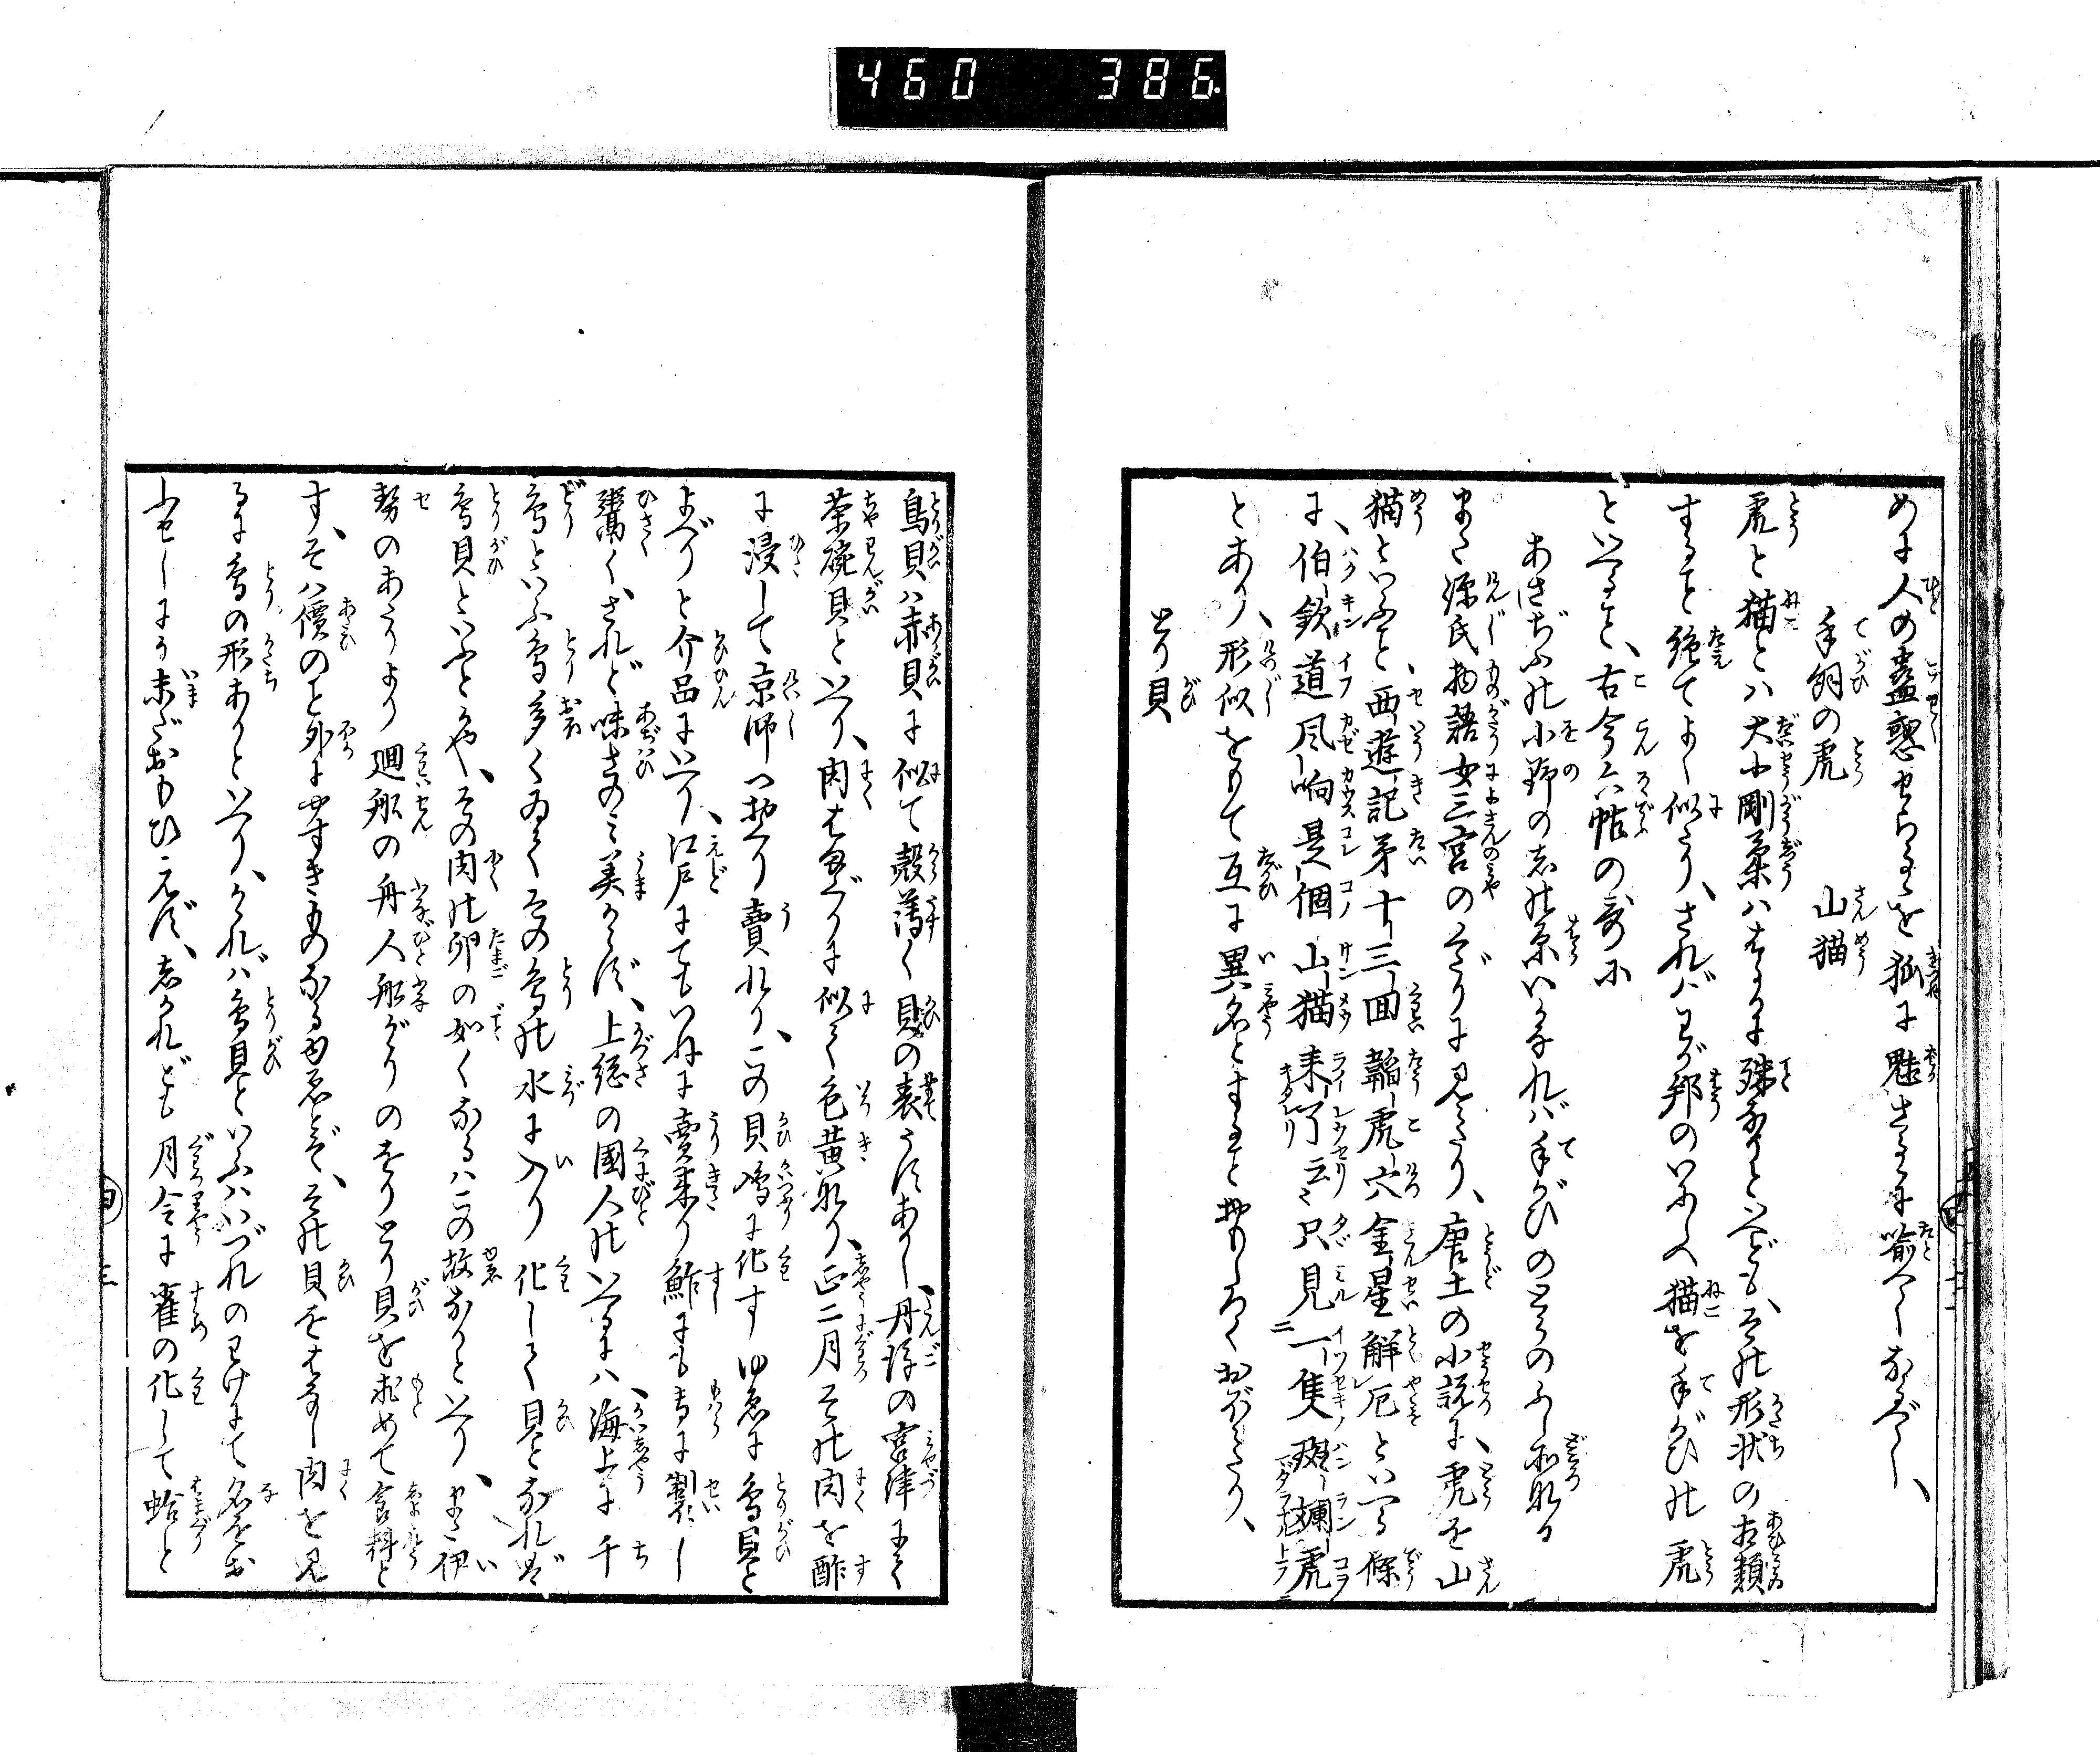 460 386
めに人の蠱惑せらるゝを狐に魅さるゝに喩へしなるべし、
手飼の虎　山猫
虎と猫とハ大小剛柔ハはるかに殊なりといへども、その形状の相類
すること絶てよく似たり、されバわが邦のいにしへ猫を手がひの虎
といへること、古今六帖の哥に
あさぢふの小野のしの原いかなれバ手がひのとらのふし所なる
また源氏物語女三宮のくだりに見えたり、唐土の小説に、虎を山
猫といふこと、西遊記第十三回蹈虎穴金星解厄といへる條
に、伯欽道風响是個山猫来了云々只見一隻斑斕虎
とあり、形似をもて互に異名とすることおもしろくおぼえたり、
とり貝
鳥貝ハ赤貝に似て殻薄く貝の表うねあり、丹後の宮津にて
茶碗貝といへり、肉ははまぐりに似て色黄なり、正二月その肉を酢
に浸して京師へおくり賣れり、この貝鳩に化すゆゑに鳥貝と
よべりと介品にいへり、江戸にてもいねに賣来り鮓にも専に製し
鬻く、されど味さのミ美からず、上総の國人のいへるハ、海上に千
鳥といふ鳥多くゐてその鳥の水に入り化して貝となれば
鳥貝といふとかや、その肉の卵の如くなるハこの故なりといへり、また伊
勢のあたりより廻船の舟人船がゝりのをりとり貝を求めて食料と
す、そハ價のこと外にやすきものなるゆゑとぞ、その貝をはなし肉を見
るに鳥の形ありといへり、かゝれバ鳥貝といふハいづれのわけにて名をお
ふせしにか未ダおもひえず、しかれども月令に雀の化して蛤と
四
三